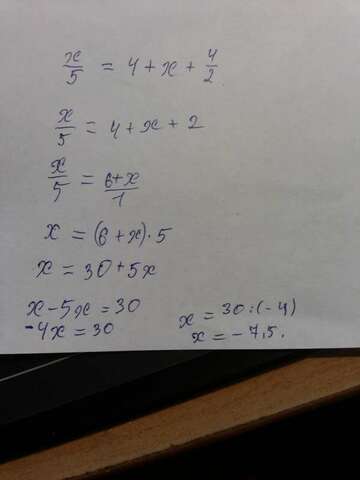 x/5 = 4 + x + 4/2
x/5 = 4 + x + 2
x/5 = 6+x/1
x = (6 + x) · 5
x = 30 + 5x
x - 5x = 30
-4x = 30
x = 30 : (-4)
x = -7,5.